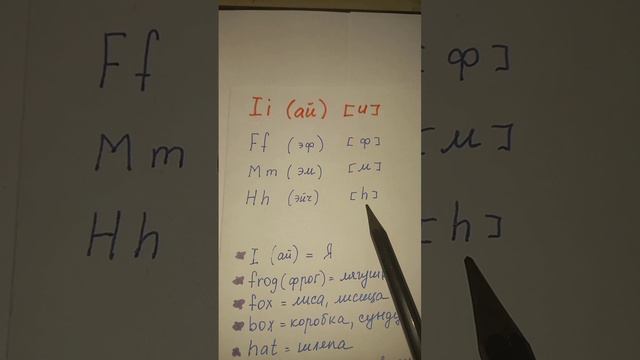 Ii (ай) [и]
Ff (эф) [ф]
Mm (эм) [м]
Hh (эйч) [h]
I (ай) = Я
frog (фрог) = лягуш
fox = лиса, лисица
box = коробка, сунду
hat = шляпа